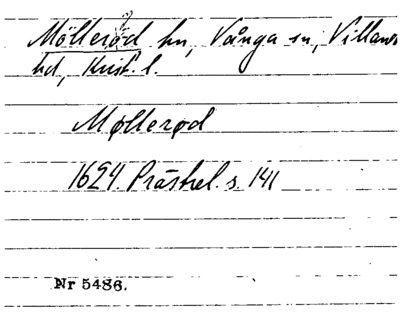 Mölleröd hn, Vånga sn, Villands
hd, Krist. l.
Møllerød
1624. Prästrel. s. 141
Nr 5486.